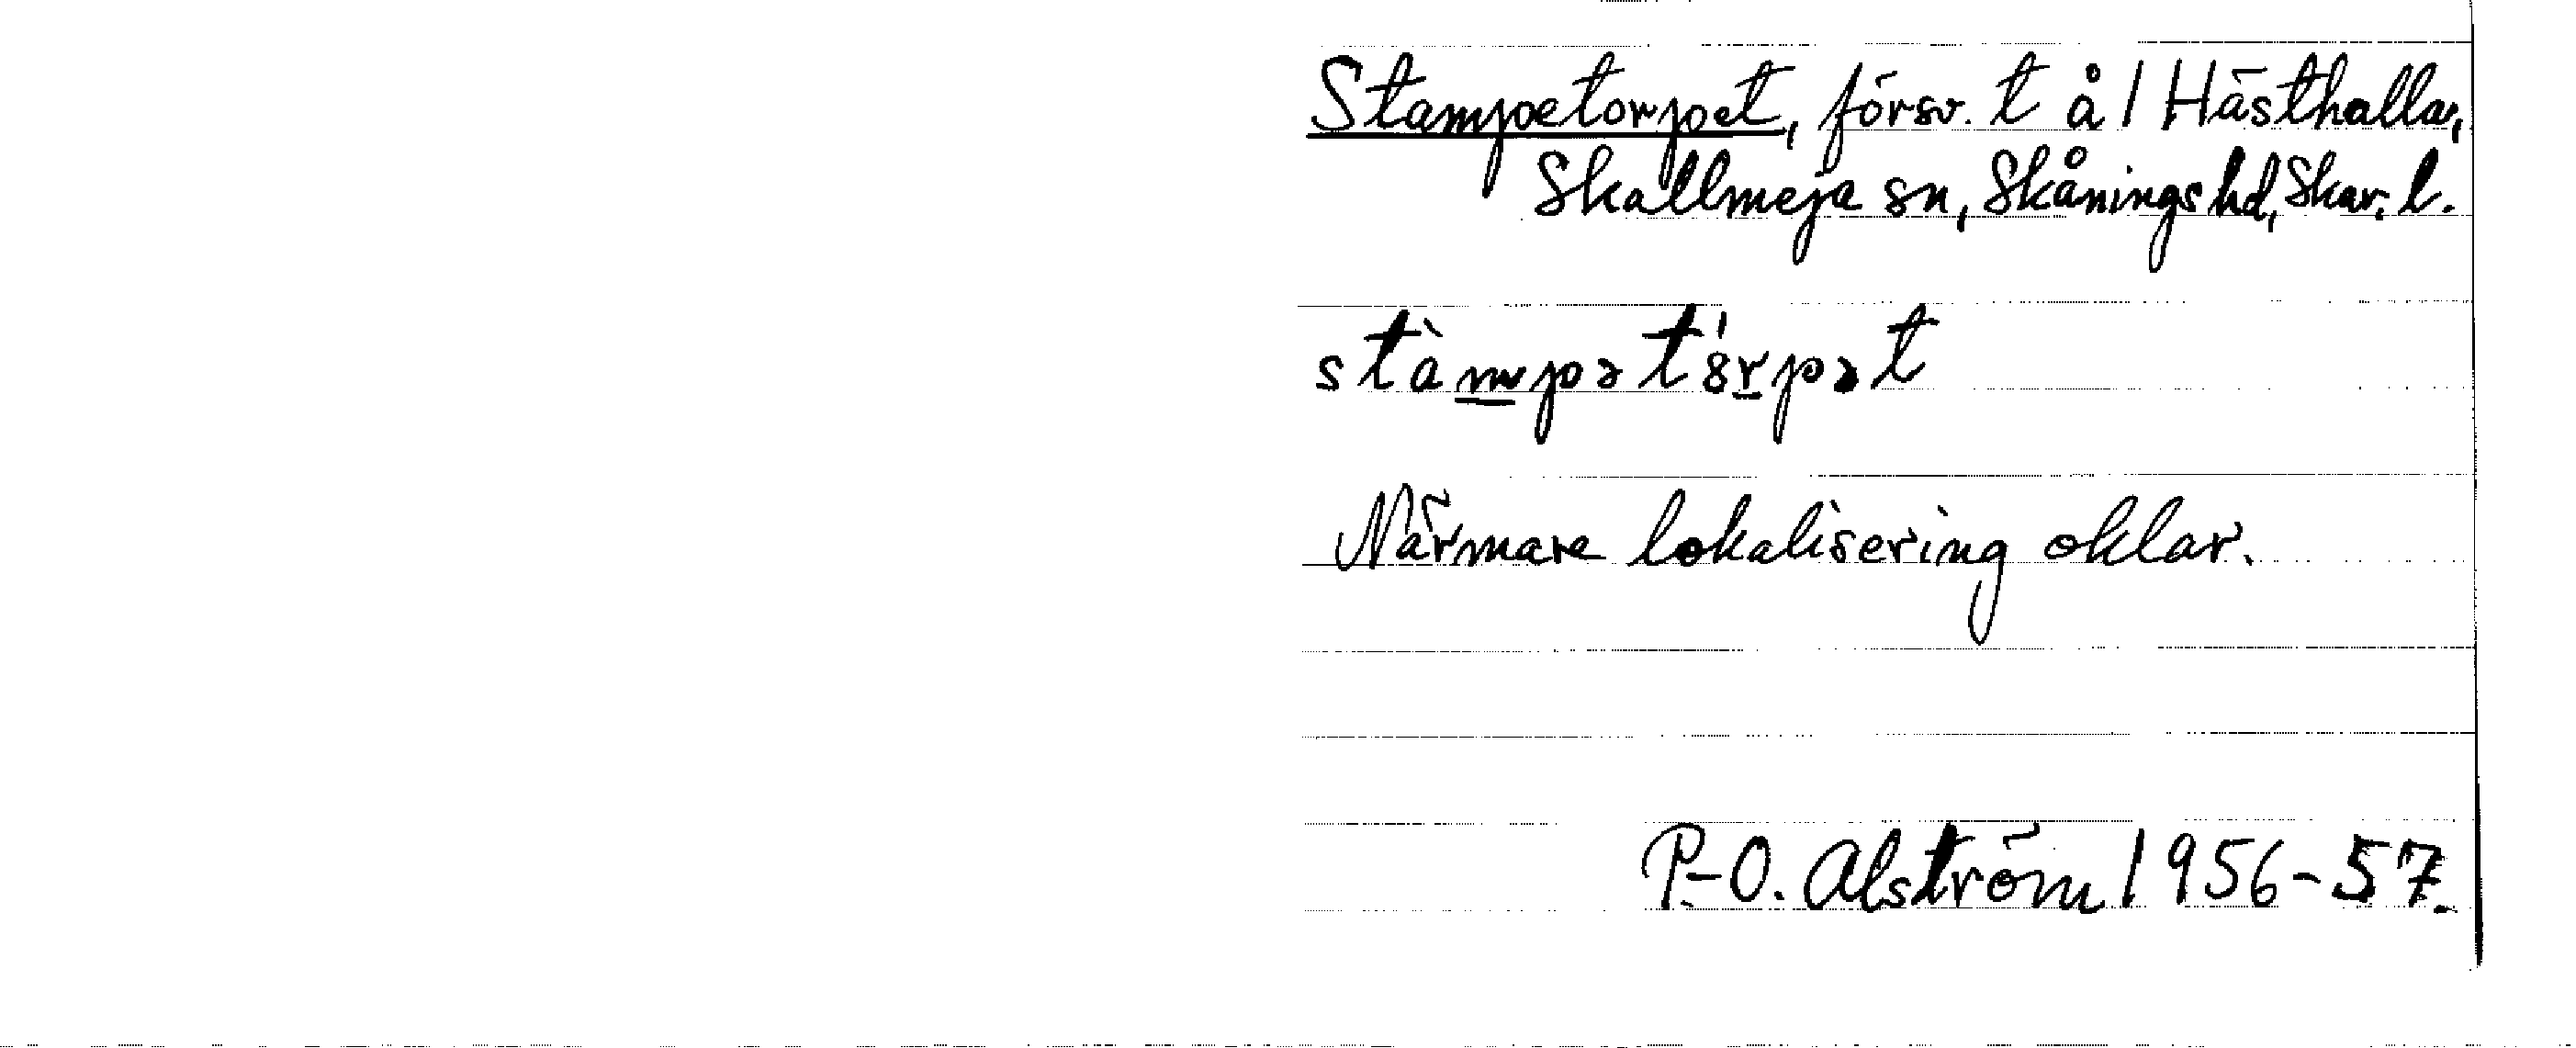 Stampetorpet, försv. t å 1 Hästhalla,
Skallmeja sn, Skånings hd, Skar. l.
stàmpətórpət
Närmare lokalisering oklar.
P-O. Alström 1956-57.